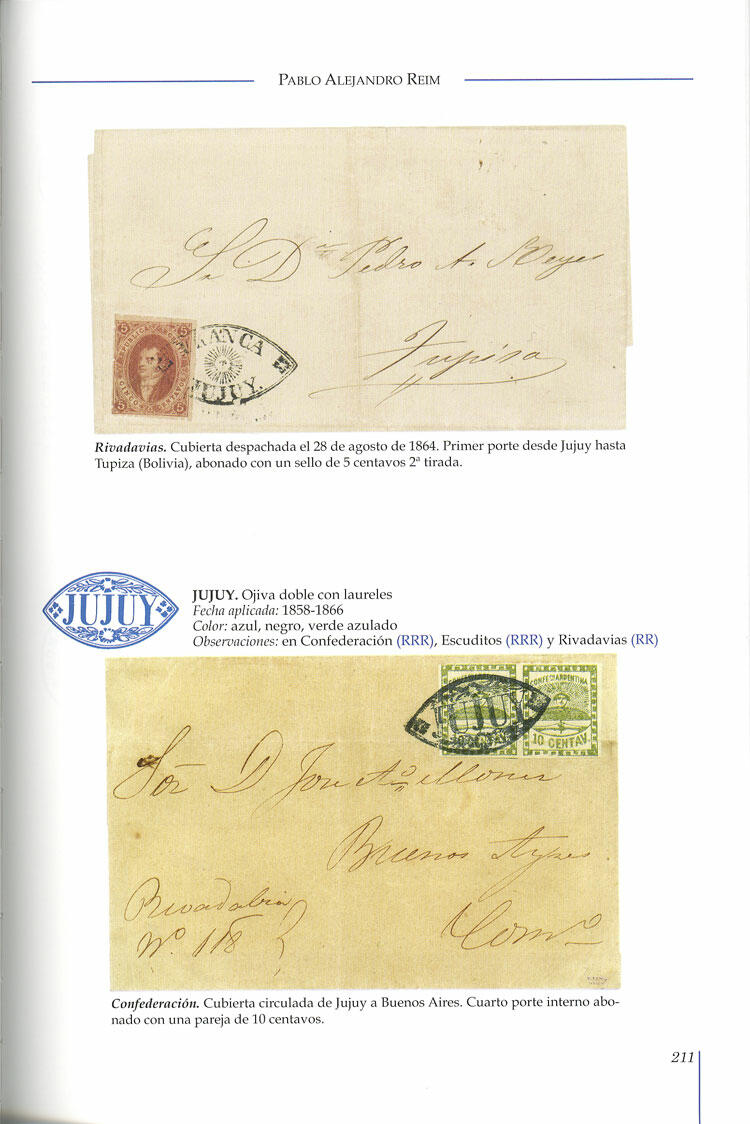 PABLO ALEJANDRO REIM
Sr. Dn Pedro A. Reyes
5 5
RANCA
JUJUY.
5 CENTAVOS 5
Tupiza
Rivadavias. Cubierta despachada el 28 de agosto de 1864. Primer porte desde Jujuy hasta
Tupiza (Bolivia), abonado con un sello de 5 centavos 2ª tirada.
JUJUY
JUJUY. Ojiva doble con laureles
Fecha aplicada: 1858-1866
Color: azul, negro, verde azulado
Observaciones: en Confederación (RRR), Escuditos (RRR) y Rivadavias (RR)
JUJUY
CONFEDON ARGENTINA
10 CENTAV.
Sor D Jose
Buenos Ayres
Rivadabia
No. 118
Confederación. Cubierta circulada de Jujuy a Buenos Aires. Cuarto porte interno abo-
nado con una pareja de 10 centavos.
211